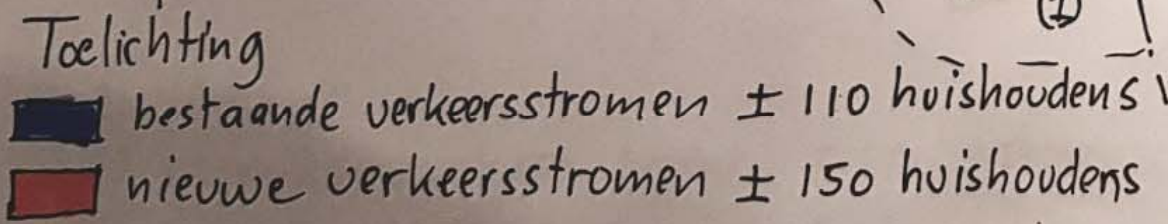 (I)
Toelichting
bestaande verkeersstromen ± 110 huishoudens
nieuwe verkeersstromen ± 150 huishoudens